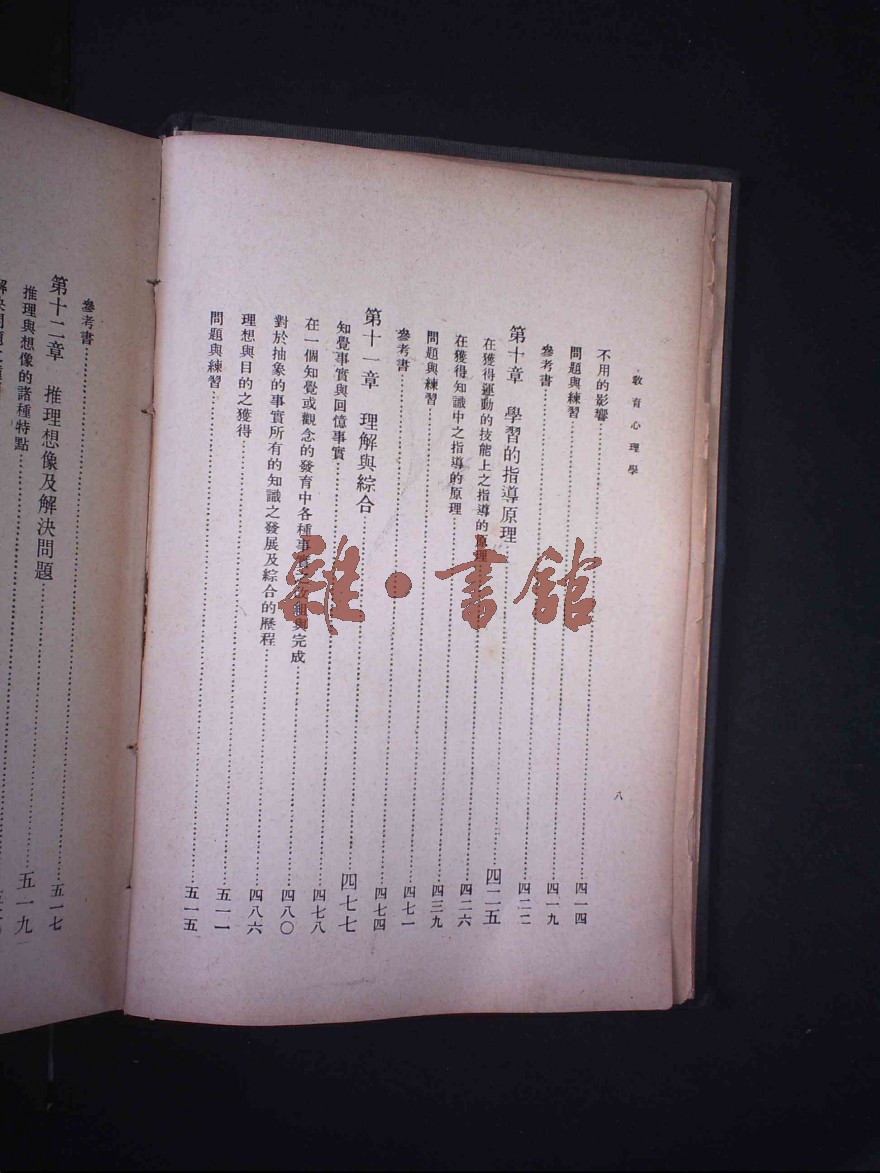 教育心理學
八
不用的影響 四一四
問題與練習 四一九
參考書 四二二
第十章 學習的指導原理 四二五
在獲得運動的技能上之指導的原理 四二六
在獲得知識中之指導的原理 四三九
問題與練習 四七一
參考書 四七四
第十一章 理解與綜合 四七七
知覺事實與回憶事實 四七八
在一個知覺或觀念的發育中各種事實之改組與完成 四八〇
對於抽象的事實所有的知識之發展及綜合的歷程 四八六
理想與目的之獲得 五一一
問題與練習 五一五
參考書 五一七
第十二章 推理想像及解決問題 五一九
推理與想像的諸種特點
雜·書館